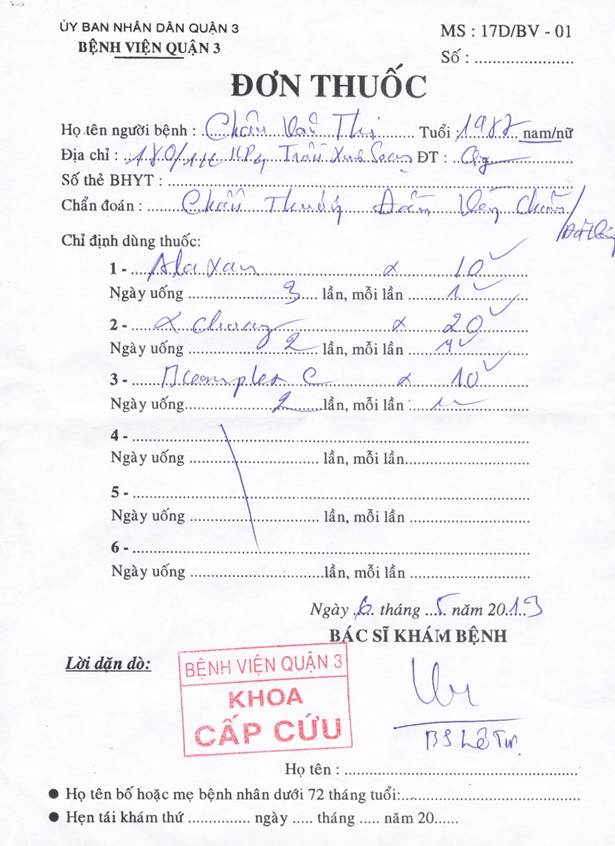 ỦY BAN NHÂN DÂN QUẬN 3
BỆNH VIỆN QUẬN 3
MS : 17D/BV - 01
Số :
ĐƠN THUỐC
Họ tên người bệnh : Thị Tuổi : 1987 nam/nữ
Địa chỉ : 180 Trần Xuân Soạn ĐT :
Số thẻ BHYT :
Chẩn đoán : Chấn Thương
Chỉ định dùng thuốc:
1 - Alaxan x 10
Ngày uống 3 lần, mỗi lần 1
2 - α x 20
Ngày uống 2 lần, mỗi lần
3 - Bcomplex C x 10
Ngày uống 2 lần, mỗi lần
4 -
Ngày uống lần, mỗi lần
5 -
Ngày uống lần, mỗi lần
6 -
Ngày uống lần, mỗi lần
Ngày 6 tháng 5 năm 2013
BÁC SĨ KHÁM BỆNH
Lời dặn dò:
BỆNH VIỆN QUẬN 3
KHOA
CẤP CỨU
BS Lê
Họ tên :
● Họ tên bố hoặc mẹ bệnh nhân dưới 72 tháng tuổi:
● Hẹn tái khám thứ ngày tháng năm 20